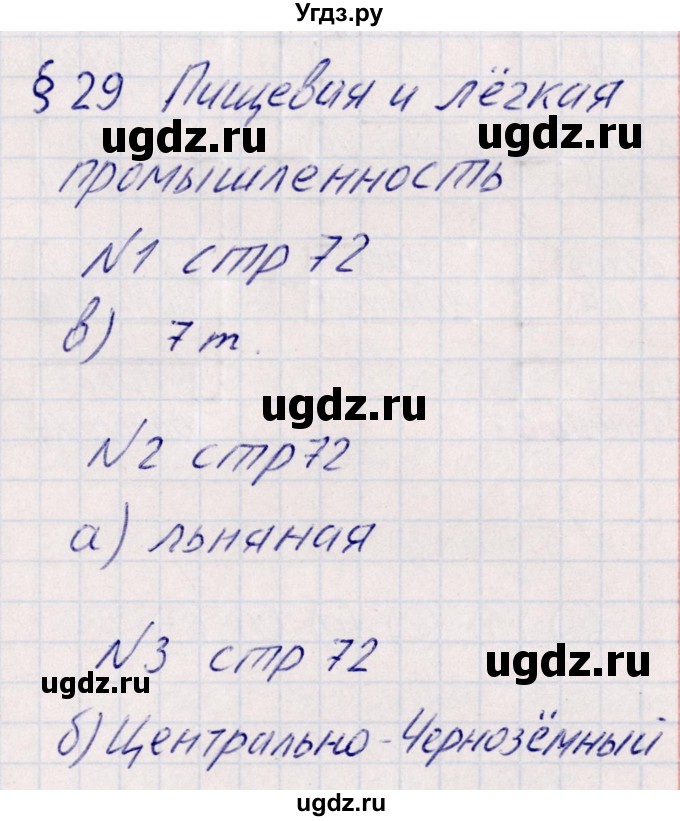 Угдз.ру
§ 29 Пищевая и лёгкая
ugdz.ru ugdz.ru
промышленность
№1 стр 72
в) 7 т.
ugdz.ru
№2 стр 72
а) льняная
№3 стр 72
ugdz.ru ugdz.ru
б) Центрально-Чернозёмный
ugdz.ru